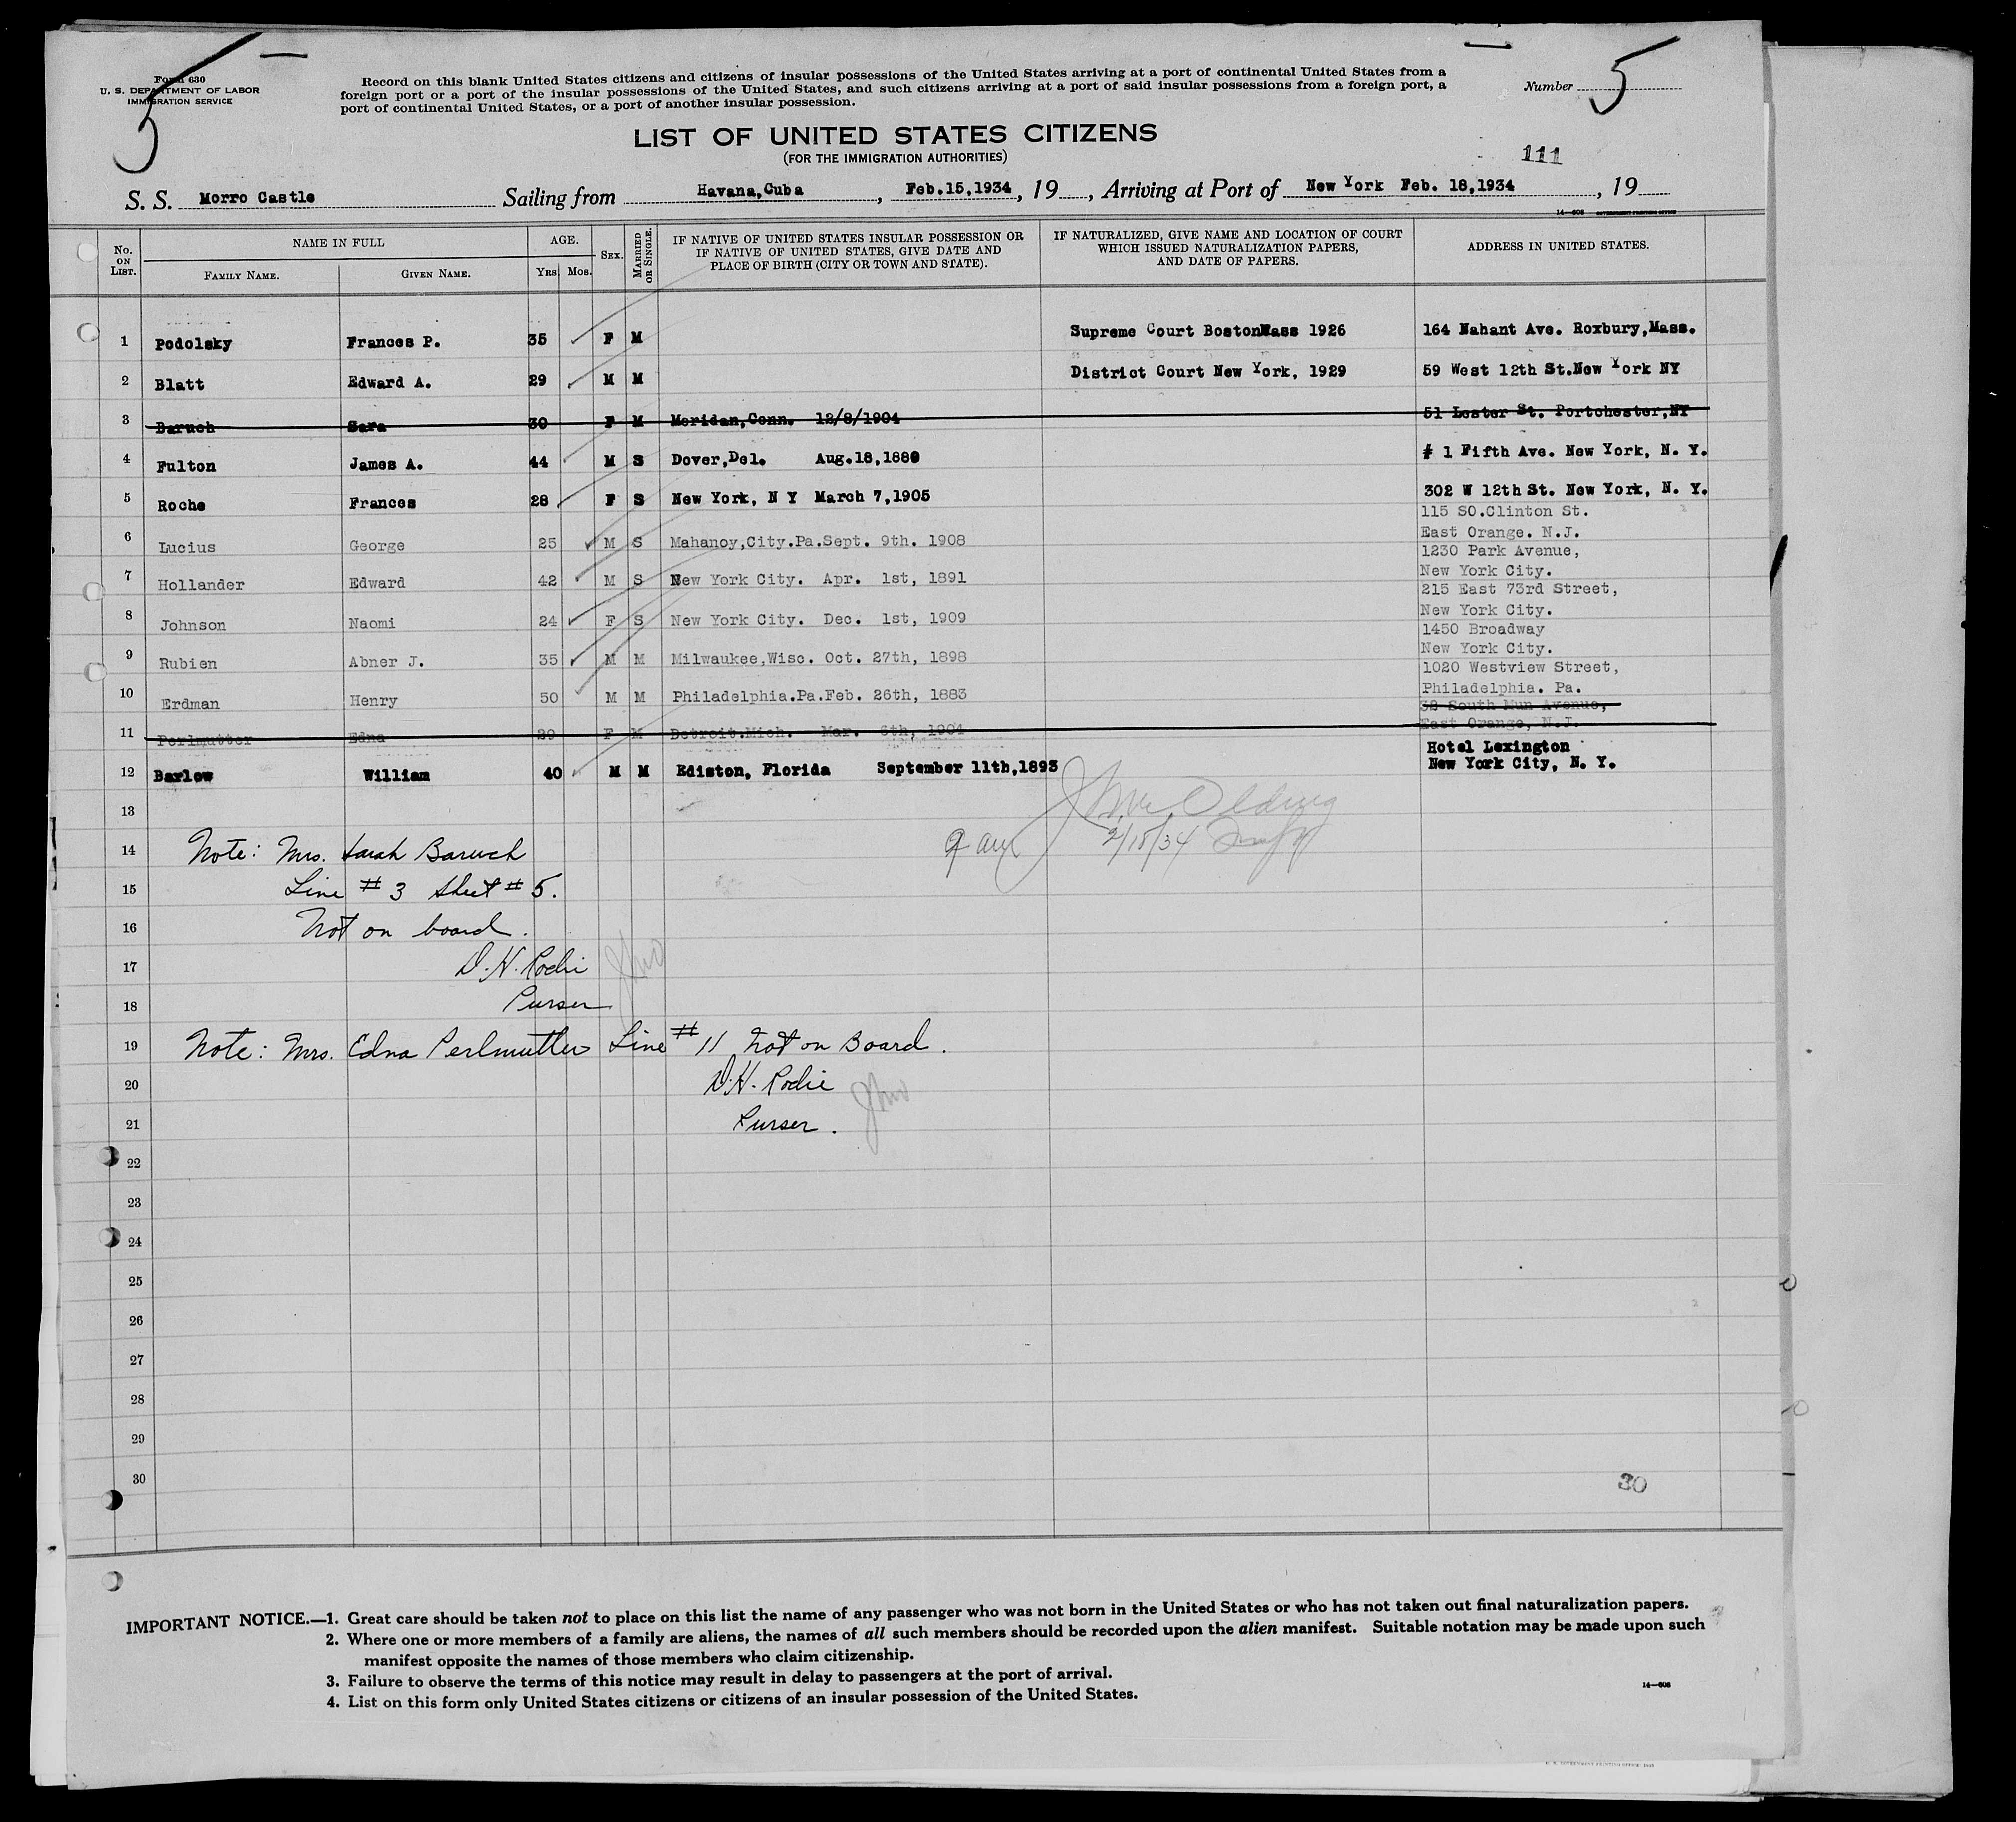 5
5
Form 630
U. S. DEPARTMENT OF LABOR
IMMIGRATION SERVICE
Record on this blank United States citizens and citizens of insular possessions of the United States arriving at a port of continental United States from a
foreign port or a port of the insular possessions of the United States, and such citizens arriving at a port of said insular possessions from a foreign port, a
port of continental United States, or a port of another insular possession.
Number
LIST OF UNITED STATES CITIZENS
(FOR THE IMMIGRATION AUTHORITIES)
111
S. S. Morro Castle Sailing from Havana,Cuba, Feb.15,1934, 19, Arriving at Port of New York Feb. 18,1934, 19
14—608 GOVERNMENT PRINTING OFFICE
No. ON LIST. NAME IN FULL FAMILY NAME. GIVEN NAME. AGE. YRS. MOS. SEX. MARRIED OR SINGLE. IF NATIVE OF UNITED STATES INSULAR POSSESSION OR IF NATIVE OF UNITED STATES, GIVE DATE AND PLACE OF BIRTH (CITY OR TOWN AND STATE). IF NATURALIZED, GIVE NAME AND LOCATION OF COURT WHICH ISSUED NATURALIZATION PAPERS, AND DATE OF PAPERS. ADDRESS IN UNITED STATES.
1 Podolsky Frances P. 35 F M Supreme Court BostonMass 1926 164 Nahant Ave. Roxbury,Mass.
2 Blatt Edward A. 29 M M District Court New York, 1929 59 West 12th St.New York NY
3 Baruch Sara 30 F M Meridan,Conn. 12/8/1904 51 Lester St. Portchester,NY
4 Fulton James A. 44 M S Dover,Del. Aug.18,1889 # 1 Fifth Ave. New York, N. Y.
5 Roche Frances 28 F S New York, N Y March 7,1905 302 W 12th St. New York, N. Y.
6 Lucius George 25 M S Mahanoy,City.Pa.Sept. 9th. 1908 115 SO.Clinton St.
East Orange. N.J.
7 Hollander Edward 42 M S New York City. Apr. 1st, 1891 1230 Park Avenue,
New York City.
8 Johnson Naomi 24 F S New York City. Dec. 1st, 1909 215 East 73rd Street,
New York City.
9 Rubien Abner J. 35 M M Milwaukee,Wisc. Oct. 27th, 1898 1450 Broadway
New York City.
10 Erdman Henry 50 M M Philadelphia.Pa.Feb. 26th, 1883 1020 Westview Street,
Philadelphia. Pa.
11 Perlmutter Edna 29 F M Detroit.Mich. Mar. 6th, 1904 32 South Mun Avenue,
East Orange, N.J.
12 Barlow William 40 M M Ediston, Florida September 11th,1893 Hotel Lexington
New York City, N. Y.
13
14 Note: Mrs. Sarah Baruch 2/18/34
15 Line # 3 Sheet # 5.
16 Not on board.
17 D.H. Rodie
18 Purser
19 Note: Mrs. Edna Perlmutter Line # 11 Not on Board.
20 D.H. Rodie
21 Purser.
22
23
24
25
26
27
28
29
30
30
IMPORTANT NOTICE.—1. Great care should be taken not to place on this list the name of any passenger who was not born in the United States or who has not taken out final naturalization papers.
2. Where one or more members of a family are aliens, the names of all such members should be recorded upon the alien manifest. Suitable notation may be made upon such
manifest opposite the names of those members who claim citizenship.
3. Failure to observe the terms of this notice may result in delay to passengers at the port of arrival.
4. List on this form only United States citizens or citizens of an insular possession of the United States.
14—608